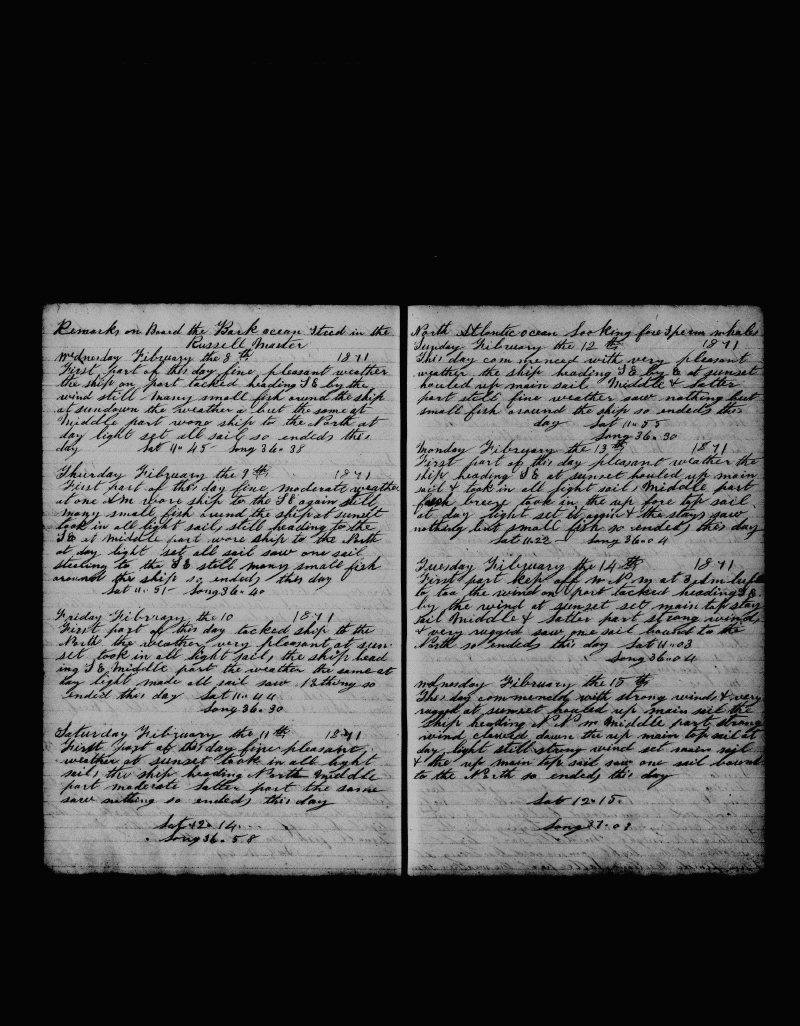 Remarks on Board the Bark ocean Steed in the
Russell Master
Wednesday Fibruary the 8th 1871
First part of this day fine pleasant weather
the ship on port tacked heading S E by the
wind still many small fish around the ship
at sundown the weather a but the same at
Middle part wore ship to the North at
day light set all sail so endeds this
day Lat 11" 45 Long 36" 38
Thursday Fibruary the 9th 1871
First part of this day fine moderate weather
at one A m wore ship to the S E again still
many small fish around the ship at sunset
took in all light sail, still heading to the
S E at middle part wore ship to the North
at day light set all sail saw one sail
steering to the S E still many small fish
around the ship so ended, this day
Lat 11" 51 - Long 36" 40
Friday Fibruary the 10 1871
First part of this day tacked ship to the
North the weather very pleasant at sun-
set took in all light sail, the ship head
ing S E, Middle part the weather the same at
day light made all sail saw thing so
ended this day Lat 11" 44
Long 36" 30
Saturday Fibruary the 11th 1871
First part of this day fine pleasant,
weather at sunset took in all light
sail, the ship heading North Middle
part moderate latter part the same
saw nothing so ended, this day
Lat 12" 14
Long 36" 58
North Atlantic ocean Looking fore Sperm whales
Sunday Fibruary the 12th 1871
This day commenced with very pleasant
weather the ship heading S E by E at sunset
houled up main sail Middle & latter
part still fine weather saw nothing but
small fish around the ship so endeds this
day Lat 11" 55
Long 36" 30
Monday Fibruary the 13th 1871
First part of this day pleasant weather the
ship heading S E at sunset houled up main
sail & took in all light sail, Middle part
fresh breeze took in the up fore top sail
at day light set it again & the stays saw
nothing but small fish so ended, this day
Lat 11.22 - Long 36" 04
Tuesday Fibruary the 14th 1871
First part kep off W N W at 3 A m luf
to too the wind on port tacked heading S E
by the wind at sunset set main top stay
sail Middle & latter part strong wind,
& very rugged saw one sail bound to the
North so endeds this day Lat 11" 03
Long 36" 04
Wednesday Fibruary the 15th
This day commenced with strong wind, & very
rugged at sunset houled up main sail the
ship heading N N W Middle part strong
wind, clewed down the up main top sail at
day light still strong wind set main sail
& the up main top sail saw one sail bound
to the North so ended, this day
Lat 12" 15
Long 37" 01